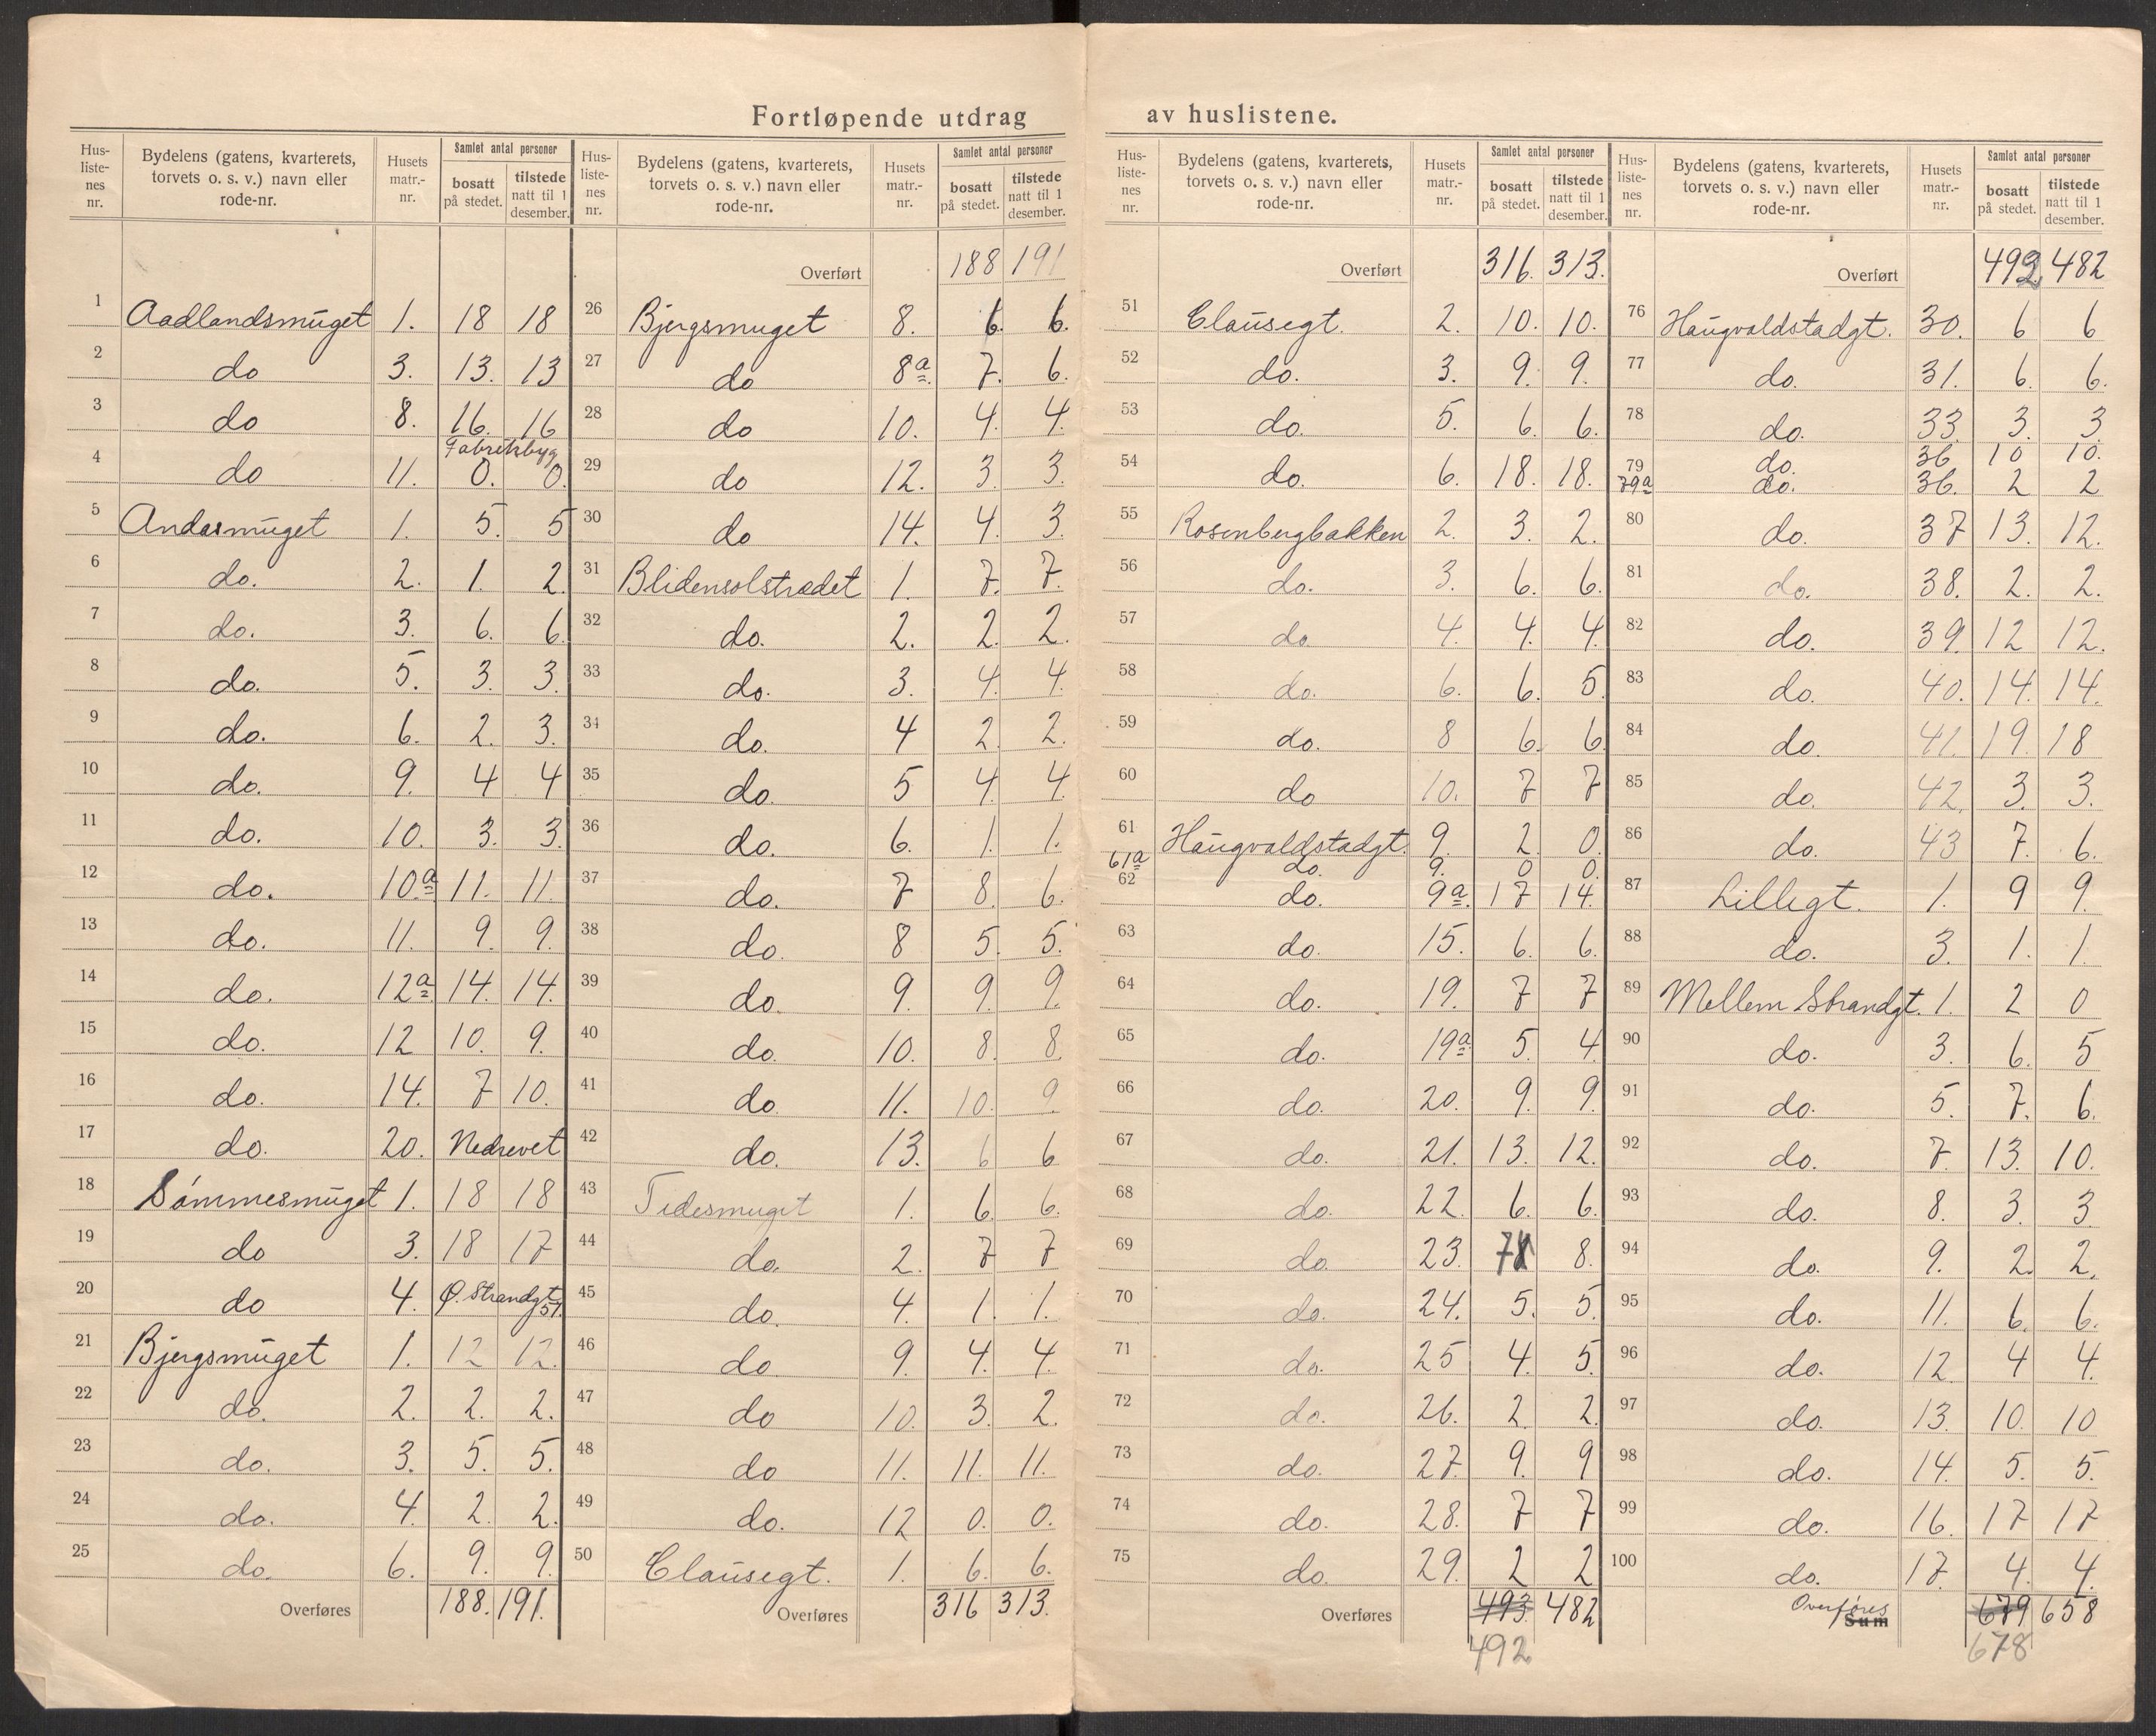 Fortløpende utdrag av huslistene.
Hus-listenes nr. | Bydelens (gatens, kvarterets, torvets o. s. v.) navn eller rode-nr. | Husets matr.-nr. | Samlet antal personer bosatt på stedet. | tilstede natt til 1 desember.
1 Aadlandsmuget 1. 18 18
2 do 3. 13. 13
3 do 8. 16. 16
Fabrikbyg
4 do 11. 0. 0.
5 Andasmuget 1. 5. 5
6 do. 2. 1. 2.
7 do. 3. 6. 6.
8 do. 5. 3. 3.
9 do. 6. 2. 3.
10 do. 9. 4 4
11 do. 10. 3. 3.
12 do. 10a. 11. 11.
13 do. 11. 9. 9.
14 do. 12a 14. 14.
15 do. 12 10. 9.
16 do. 14. 7 10.
17 do. 20. Nedrevet
18 Sömmesmuget 1. 18 18
19 do 3. 18 17
20 do 4. Ø. Strandgt. 51.
21 Bjergsmuget 1. 12 12.
22 do. 2. 2. 2.
23 do. 3. 5. 5.
24 do. 4. 2. 2.
25 do. 6. 9. 9.
Overføres 188. 191.
Hus-listenes nr. | Bydelens (gatens, kvarterets, torvets o. s. v.) navn eller rode-nr. | Husets matr.-nr. | Samlet antal personer bosatt på stedet. | tilstede natt til 1 desember.
Overført 188 191
26 Bjergsmuget 8. 6. 6.
27 do 8a. 7. 6.
28 do 10. 4. 4.
29 do 12. 3. 3.
30 do 14. 4. 3.
31 Blidensolstrædet 1. 7. 7.
32 do. 2. 2. 2.
33 do. 3. 4. 4.
34 do. 4 2 2.
35 do. 5 4. 4.
36 do. 6. 1. 1.
37 do. 7 8. 6.
38 do. 8 5. 5.
39 do. 9. 9. 9.
40 do. 10. 8. 8.
41 do. 11. 10. 9
42 do. 13. 6 6
43 Tidesmuget 1. 6. 6.
44 do. 2. 7 7
45 do. 4. 1. 1.
46 do. 9. 4. 4.
47 do 10. 3. 2.
48 do 11. 11. 11.
49 do. 12 0. 0.
50 Clausegt. 1. 6. 6.
Overføres 316 313.
Hus-listenes nr. | Bydelens (gatens, kvarterets, torvets o. s. v.) navn eller rode-nr. | Husets matr.-nr. | Samlet antal personer bosatt på stedet. | tilstede natt til 1 desember.
Overført 316. 313.
51 Clausegt. 2. 10. 10.
52 do. 3. 9. 9.
53 do. 5. 6. 6.
54 do. 6. 18. 18.
55 Rosenbergbakken 2. 3. 2.
56 do. 3. 6. 6.
57 do 4. 4. 4.
58 do. 6. 6. 5.
59 do. 8 6. 6.
60 do 10. 7 7
61 Haugvaldstadgt. 9. 2. 0.
61a do. 9. 0 0.
62 do. 9a. 17 14.
63 do. 15. 6. 6.
64 do. 19. 7 7
65 do. 19a 5. 4.
66 do. 20. 9. 9.
67 do. 21. 13. 12.
68 do. 22. 6. 6.
69 do. 23. 7 8.
70 do. 24. 5. 5.
71 do. 25 4. 5.
72 do. 26. 2. 2.
73 do. 27. 9. 9
74 do. 28. 7 7
75 do. 29. 2 2
Overføres 493. 482
492
Hus-listenes nr. | Bydelens (gatens, kvarterets, torvets o. s. v.) navn eller rode-nr. | Husets matr.-nr. | Samlet antal personer bosatt på stedet. | tilstede natt til 1 desember.
Overført 492 482
76 Haugvaldstadgt. 30. 6 6
77 do. 31. 6. 6.
78 do. 33. 3. 3.
79 do. 36 10 10.
79a do. 36. 2 2
80 do. 37 13. 12.
81 do. 38. 2. 2.
82 do. 39. 12 12.
83 do. 40. 14. 14.
84 do. 41. 19. 18
85 do. 42. 3. 3.
86 do. 43 7. 6.
87 Lillegt. 1. 9 9.
88 do. 3. 1. 1.
89 Mellem Strandgt. 1. 2 0
90 do. 3. 6. 5
91 do. 5. 7. 6.
92 do. 7. 13. 10.
93 do. 8. 3. 3
94 do. 9. 2. 2.
95 do. 11. 6. 6.
96 do. 12. 4 4.
97 do. 13. 10. 10
98 do. 14. 5. 5.
99 do. 16. 17 17
100 do. 17. 4. 4.
Overføres Sum 679 658
678